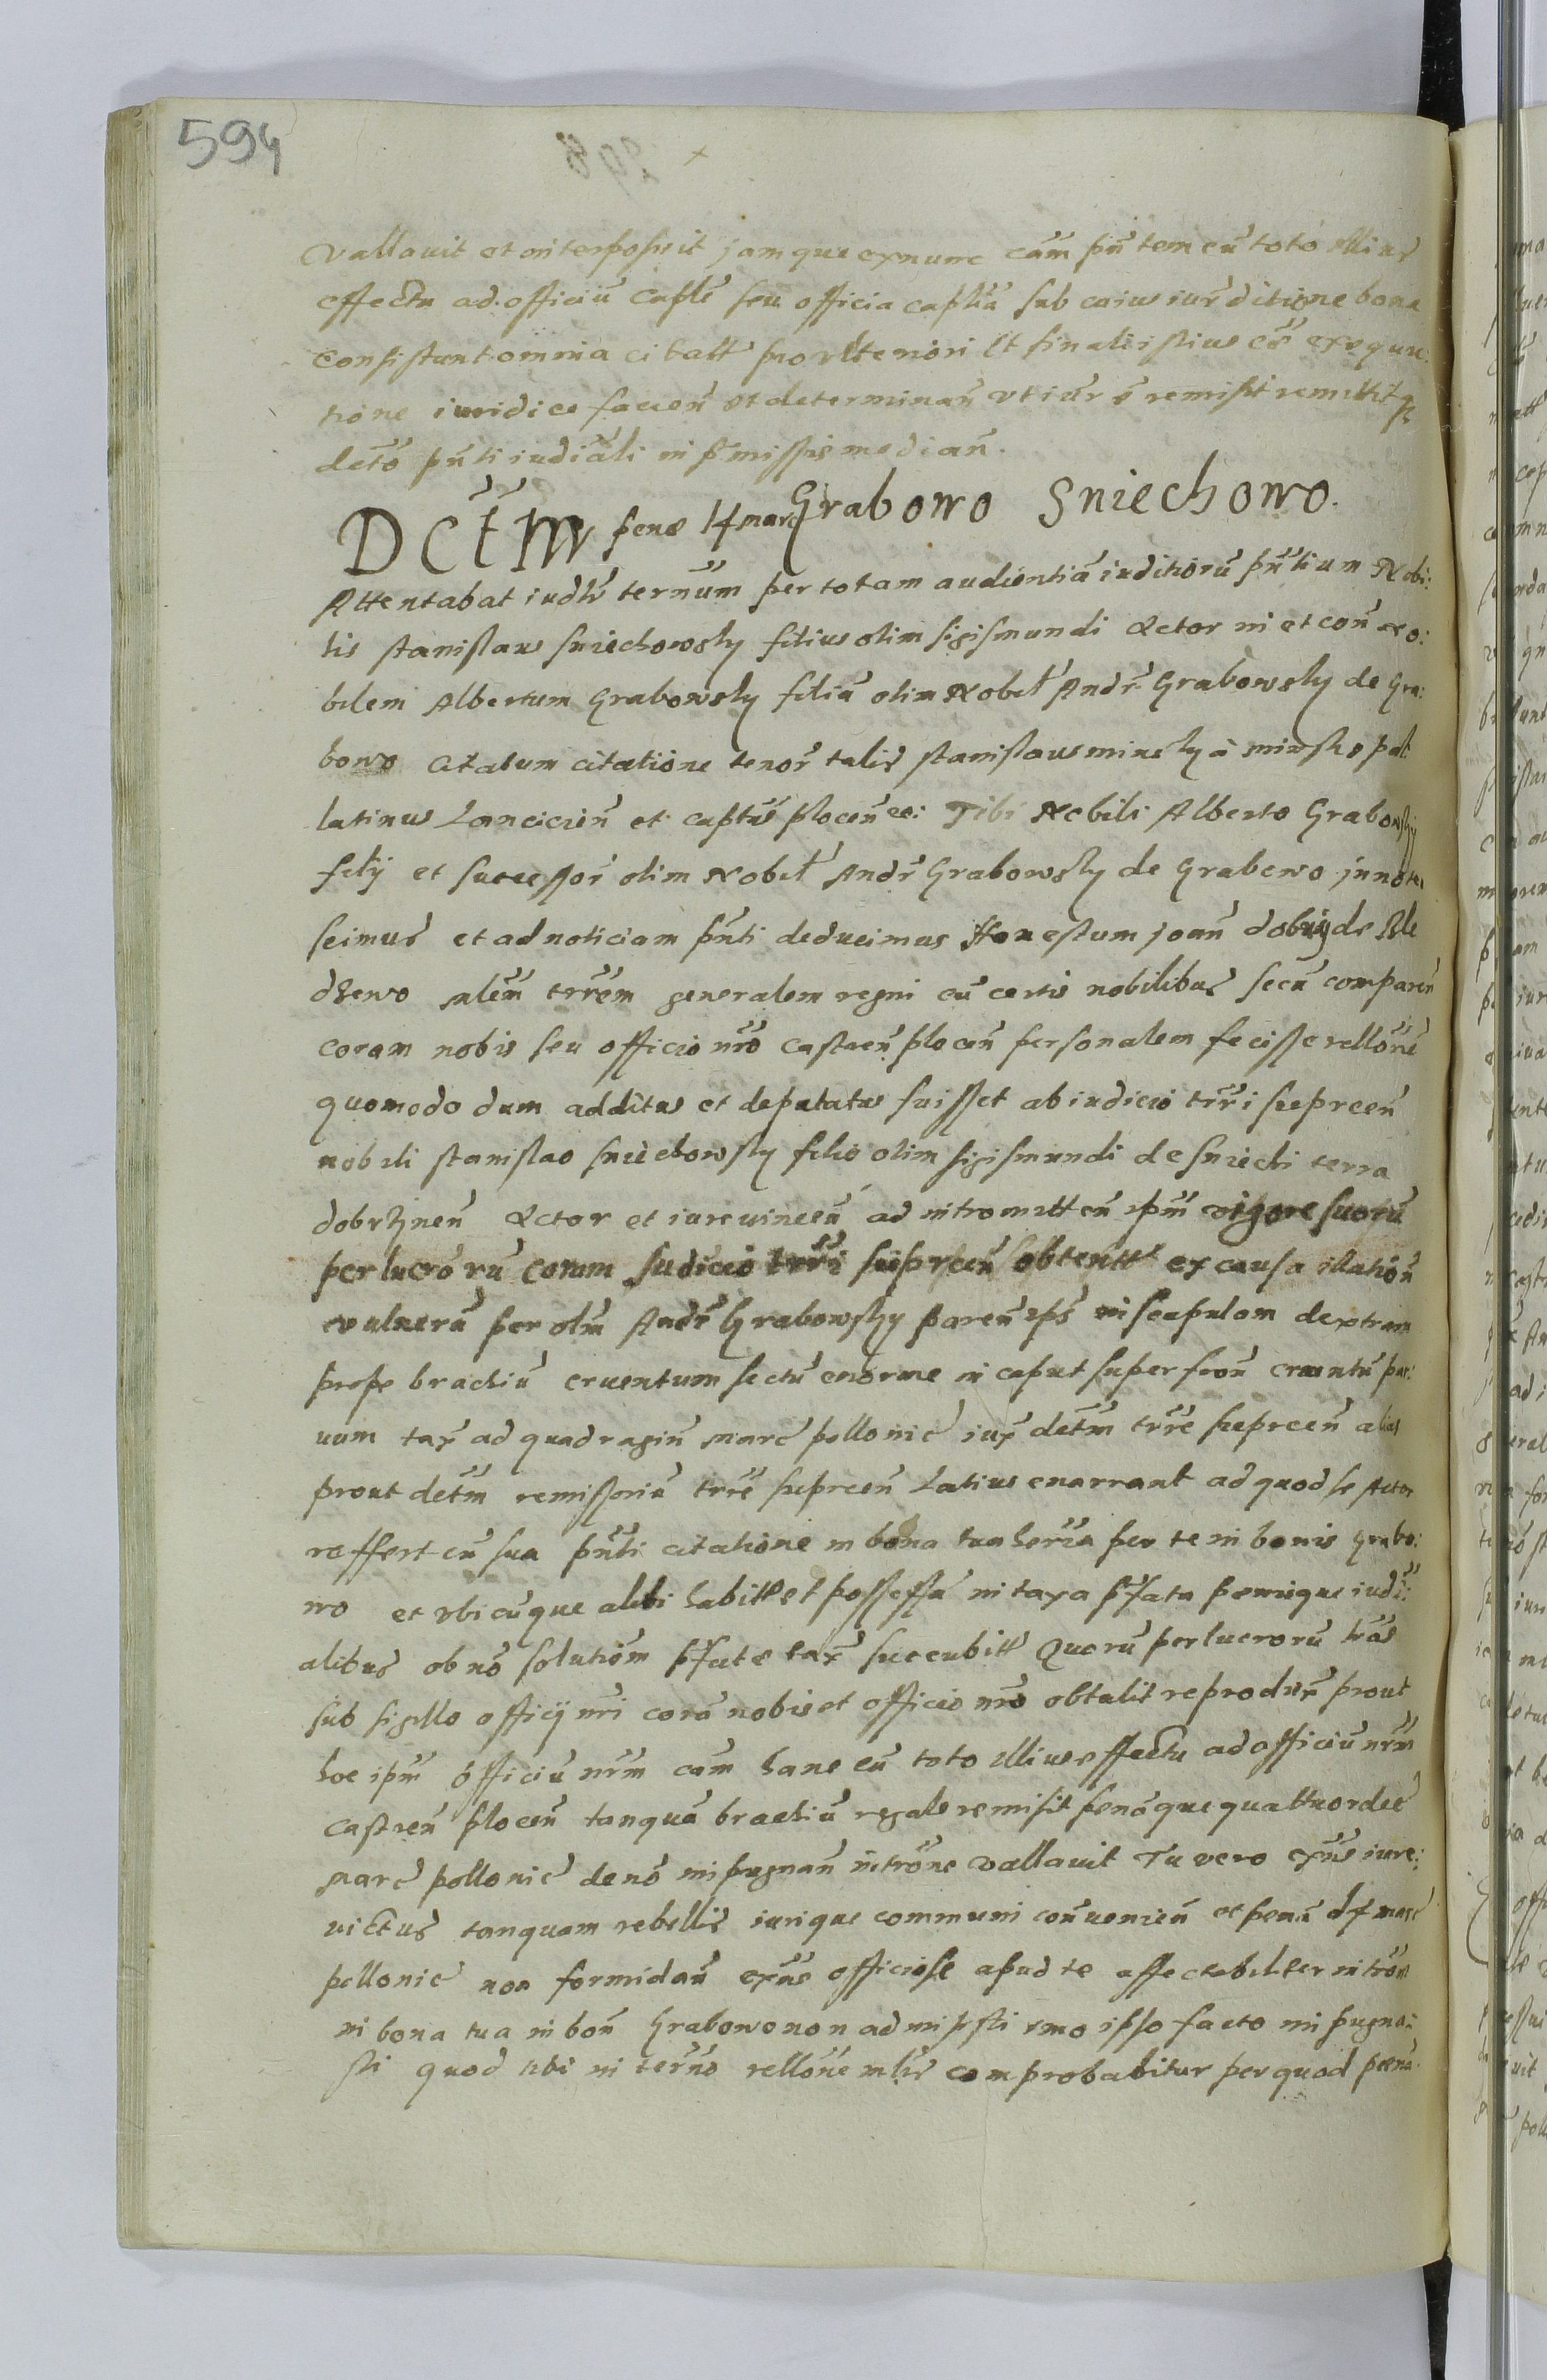 594
vallauit et interposuit jamque exnunc cãm pñtem cũ toto illius
effectu ad officiũ Capĩt seu officia Capĩtia sub cuius iurẽditione bona
consistunt omnia citatt pro ulteriori et finali istius cẽ exequu:
tione iuridice facieñ et determinañ ut iuris remisit remittitqz
detõ pñti iudiciãli in pmissis mediañ.
DCtm pene 14 marc Grabowo Sniechowo.
Attentabat iudlr terñum per totam audientiã iuditiorũ pñtium Nobi:
lis Stanislaus Sniechowsky filius olim Sigismundi Actor in et coñ no:
bilem Albertum Grabowsky filiũ olim Nobil Andr Grabowsky de Gra:
bowo Citatum citatione tenor talis Stanislaus minsky à minsko pal
latinus Lanciciẽn et captũs ploceñ ec: Tibi Nobili Alberto Grabowsky
filij et succesor olim Nobil Andr Grabowsky de Grabowo jnnote
scimus et ad noticiam pñti deducimus Honestum joañ de
generalem regni cũ certis nobilibus secũ compareñ
coram nobis seu officio nrõ castreñ ploceñ personalem fecisse rellõnẽ
quomodo dum additus et deputatus fuisset ab iudicio trri sieprceñ
nobili Stanislao Sniechowsky filio olim Sigismundi de Sniechi terra
dobrzyneñ Actor et iureuinceñ ad intromitteñ ipm vigore suorũ
perlucrorũ coram Judicio trri sieprceñ obtentt ex causa ilatioñ
vulnerũ per olm Andr Grabowsky pareñ ips in scapulam dextram
prope brachiũ cruentum sectũ enorme in caput super froñ cruentũ par:
uum tax ad quadragiñ marc pollonic iux detm trre sieprceñ alias
prout detm remissoriũ trre sieprceñ latius enarrant ad quod se Actor
reffert cũ sua pñti citatione in bona tua herria per te in bonis Grabo:
wo et ubicũque alibi habitt et possessa in taxa pfata penisque iudi:
alibus ob nõ solutiõm pfate tax succubitt Quorũ perlucrorũ trãs
sub sigillo officij nri corã nobis et officio nrõ obtulit reprodux prout
hoc ipm officiũ nrm cãm hanc cũ toto illius effectu ad officiũ nrm
castreñ ploceñ tanquã brachiũ regale remisit penãque quattuordec
marc pollonic de nõ impugnañ intrõne vallauit Tu vero exñs iure:
victus tanquam rebellis iurique communi conuenieñ et penã 14 marc
pollonic non formidañ exñs officiose apud te affectabiliter intrõm
in bona tua in boñ Grabowo non admisisti imo ipso facto impugna:
sti quod tibi in terño rellõne mlis comprobabitur per quod penã